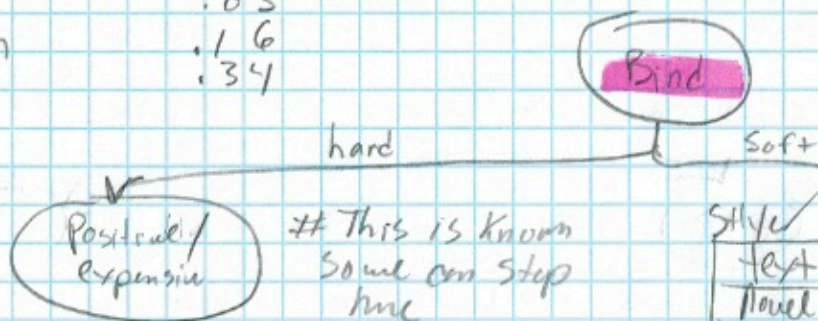 .16
.34
Bind
hard
Soft
Positive/
expensive
# This is known
some can stop
here
Style
text
Novel